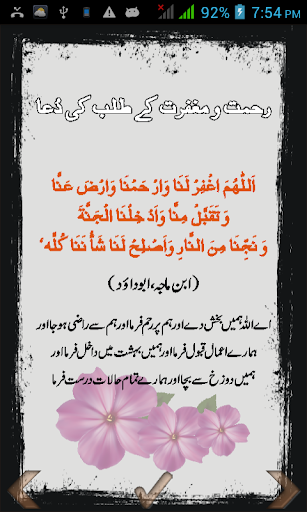 92% 7:54 PM
رحمت و مغفرت کے طلب کی دُعا
اَللّٰهُمَّ اغْفِرْ لَنَا وَارْحَمْنَا وَارْضَ عَنَّا
وَتَقَبَّلْ مِنَّا وَاَدْخِلْنَا الْجَنَّةَ
وَنَجِّنَا مِنَ النَّارِ وَاَصْلِحْ لَنَا شَأْنَنَا كُلَّهٗ
(ابن ماجہ، ابوداؤد)
اے اللہ ہمیں بخش دے اور ہم پر رحم فرما اور ہم سے راضی ہو جا اور
ہمارے اعمال قبول فرما اور ہمیں بہشت میں داخل فرما اور
ہمیں دوزخ سے بچا اور ہمارے تمام حالات درست فرما